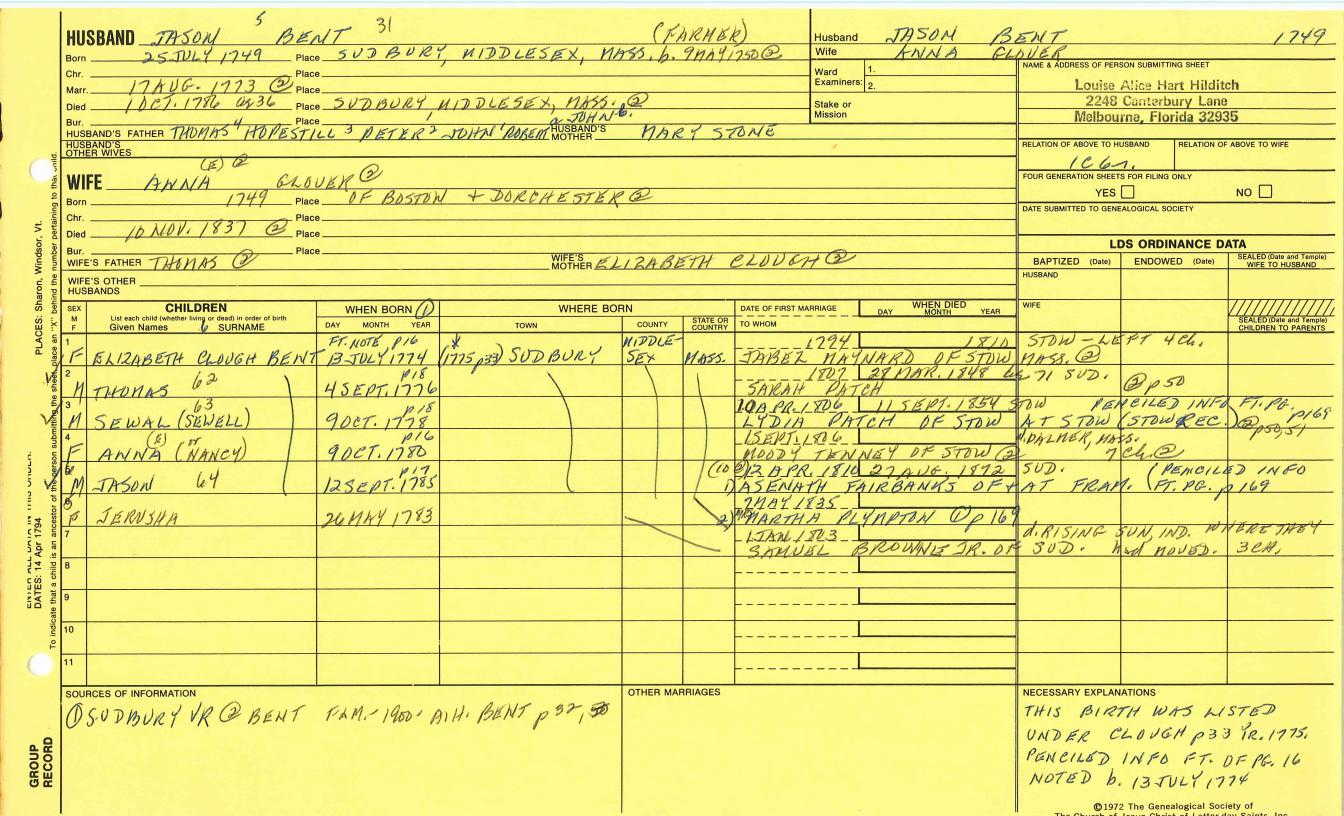 HUSBAND JASON 5 BENT 31 (FARMER)
Born 25 JULY 1749 Place SUDBURY, MIDDLESEX, MASS. b. 9 MAY 1750 ②
Chr. Place
Marr. 17 AUG. 1773 ② Place
Died 1 OCT. 1786 ag 36 Place SUDBURY, MIDDLESEX, MASS. ②
Bur. Place
HUSBAND'S FATHER THOMAS 4 HOPESTILL 3 PETER 2 JOHN 1 ROBERT a JOHN b. HUSBAND'S MOTHER MARY STONE
HUSBAND'S OTHER WIVES
WIFE ANNA (E) ② GLOVER ②
Born 1749 Place OF BOSTON + DORCHESTER ②
Chr. Place
Died 10 NOV. 1837 ② Place
Bur. Place
WIFE'S FATHER THOMAS ② WIFE'S MOTHER ELIZABETH CLOUGH ②
WIFE'S OTHER HUSBANDS
Husband JASON BENT 1749
Wife ANNA GLOVER
Ward Examiners: 1.
2.
Stake or Mission
NAME & ADDRESS OF PERSON SUBMITTING SHEET
Louise Alice Hart Hilditch
2248 Canterbury Lane
Melbourne, Florida 32935
RELATION OF ABOVE TO HUSBAND RELATION OF ABOVE TO WIFE
1C6r.
FOUR GENERATION SHEETS FOR FILING ONLY
YES NO
DATE SUBMITTED TO GENEALOGICAL SOCIETY
LDS ORDINANCE DATA
BAPTIZED (Date) ENDOWED (Date) SEALED (Date and Temple) WIFE TO HUSBAND
HUSBAND
WIFE
SEALED (Date and Temple) CHILDREN TO PARENTS
SEX M F CHILDREN WHEN BORN ① WHERE BORN DATE OF FIRST MARRIAGE WHEN DIED
List each child (whether living or dead) in order of birth
Given Names 6 SURNAME DAY MONTH YEAR TOWN COUNTY STATE OR COUNTRY TO WHOM DAY MONTH YEAR
1 FT. NOTE p16 x MIDDLE- 1794 1810 STOW - LEFT 4 Ch.
F ELIZABETH CLOUGH BENT 13 JULY 1774 (1775 p33) SUDBURY SEX MASS. JABEZ MAYNARD OF STOW, MASS. ②
2 62 p18 1807 28 MAR. 1848 ag 71 SUD.
M THOMAS 4 SEPT. 1776 SARAH PATCH ② p50
3 63 p18 10 APR. 1806 11 SEPT. 1854 STOW PENCILED INFO FT. PG. p169
M SEWAL (SEWELL) 9 OCT. 1778 LYDIA PATCH OF STOW AT STOW (STOW REC.) ② p50,51
4 (E) or p16 1 SEPT. 1806 d. PALMER, MASS.
F ANNA (NANCY) 9 OCT. 1780 MOODY TENNEY OF STOW ② 7 Ch. ②
5 64 p17 (10 ②) 12 APR. 1810 27 AUG. 1872 SUD. (PENCILED INFO
M JASON 12 SEPT. 1785 1) ASENATH FAIRBANKS OF + AT FRAM. FT. PG. p169
6 7 MAY 1835
F JERUSHA 26 MAY 1783 2) MRS MARTHA PLYMPTON ① p169
7 1 JAN 1803 d. RISING SUN, IND. WHERE THEY
SAMUEL BROWNE JR. OF SUD. had MOVED. 3 CH.
8
9
10
11
SOURCES OF INFORMATION
① SUDBURY VR ② BENT FAM. - 1900 - A.H. BENT p 32,
OTHER MARRIAGES
NECESSARY EXPLANATIONS
THIS BIRTH WAS LISTED
UNDER CLOUGH p33 YR. 1775.
PENCILED INFO FT. OF PG. 16
NOTED b. 13 JULY 1774
©1972 The Genealogical Society of
The Church of Jesus Christ of Latter-day Saints, Inc.
PLACES: Sharon, Windsor, Vt.
ENTER ALL DATA IN THIS ORDER:
DATES: 14 Apr 1794
To indicate that a child is an ancestor of the person submitting the sheet, place an "X" behind the number pertaining to that child.
GROUP RECORD